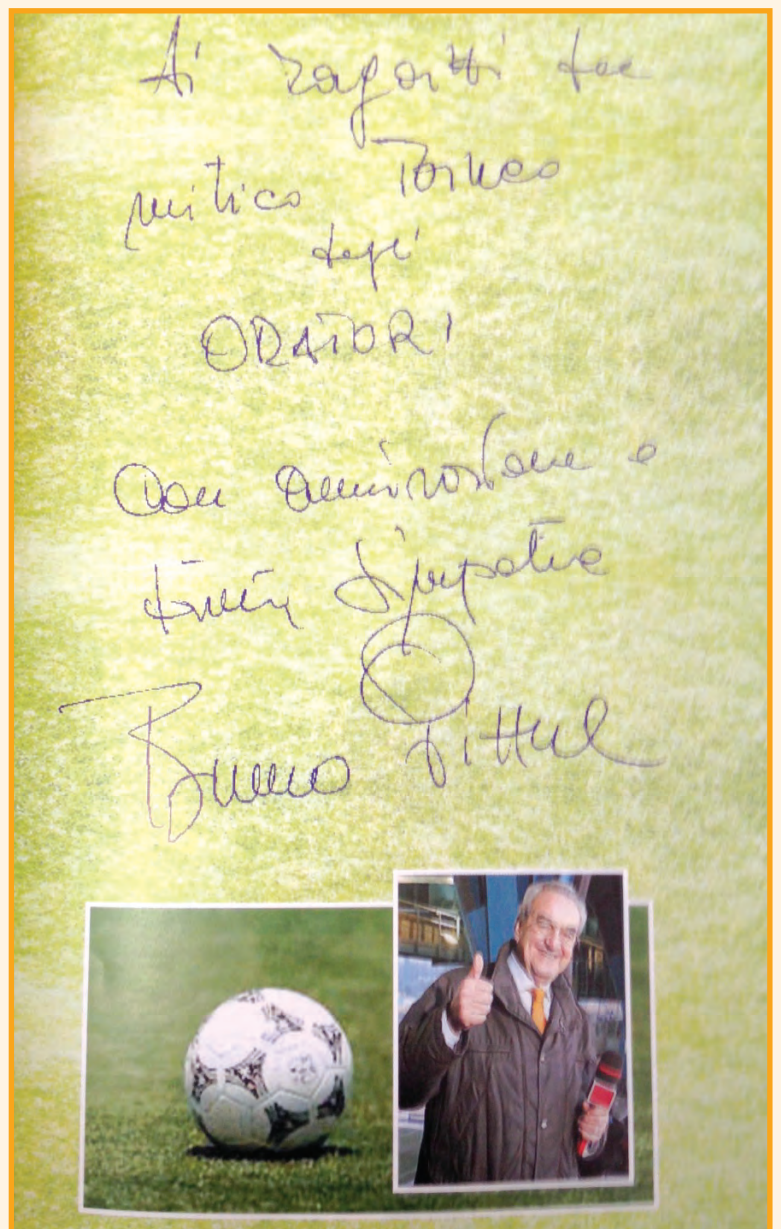 Ai ragazzi del
mitico Torneo
degli
ORATORI
Con ammirazione e
tanta simpatia
Bruno Pizzul